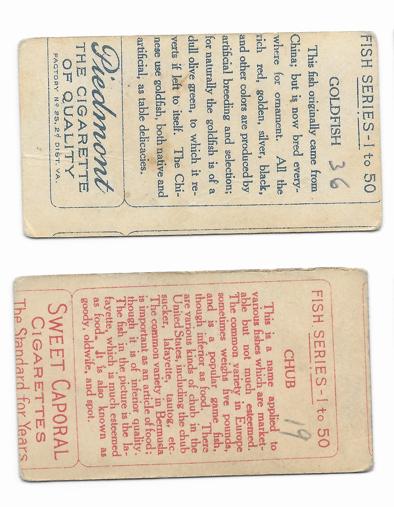 FISH SERIES-1 to 50
GOLDFISH 36
This fish originally came from
China; but is now bred every-
where for ornament. All the
rich red, golden, silver, black,
and other colors are produced by
artificial breeding and selection;
for naturally the goldfish is of a
dull olive green, to which it re-
verts if left to itself. The Chi-
nese use goldfish, both native and
artificial, as table delicacies.
Piedmont
THE CIGARETTE
OF QUALITY
FACTORY No 25, 2d DIST. VA.
FISH SERIES-1 to 50
CHUB 19
This is a name applied to
various fishes which are market-
able but not much esteemed.
The common variety in Europe
sometimes weighs five pounds,
and is a popular game fish,
though inferior as food. There
are various kinds of chub in the
United States, including the chub
sucker, lafayette, tautog, etc.
The common variety in Bermuda
is important as an article of food;
though it is of inferior quality.
The fish in the picture is the la-
fayette, which is much esteemed
as food. It is also known as
goody, oldwife, and spot.
SWEET CAPORAL
CIGARETTES
The Standard for Years